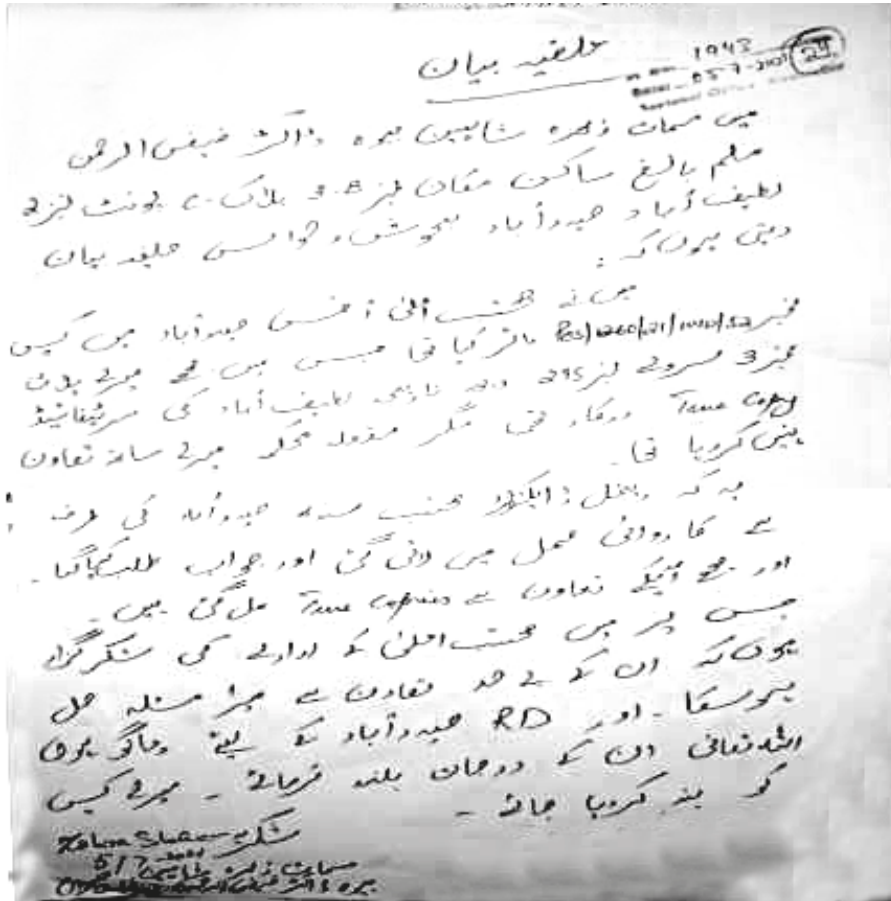 حلفیہ بیان
1943
05-7-2021
29
میں مسمات زہرہ شاہین بیوہ ڈاکٹر فیض الرحمن
مسلم بالغ ساکن مکان نمبر B-3 بلاک C یونٹ نمبر 2
لطیف آباد حیدرآباد بحوش و حواس حلفیہ بیان
دیتی ہوں کہ :
میں نے محتسب اعلیٰ آفس حیدرآباد میں کیس
نمبر دائر کیا تھا جس میں مجھے میرے پلاٹ
نمبر 3 سروے نمبر 295 دیہہ لطیف آباد کی سرٹیفائیڈ
True Copy درکار تھی مگر متعلقہ محکمہ میرے ساتھ تعاون
نہیں کررہا تھا۔
یہ کہ ریجنل ڈائریکٹر محتسب سندھ حیدرآباد کی طرف
سے کاروائی عمل میں لائی گئی اور جواب طلب کیا گیا۔
اور مجھے آپکے تعاون سے True Copies مل گئی ہیں۔
جس پر میں محتسب اعلیٰ کے ادارے کی شکر گزار
ہوں کہ ان کے بے حد تعاون سے میرا مسئلہ حل
ہوسکا۔ اور RD حیدرآباد کے لیئے دعاگو ہوں
اللہ تعالیٰ ان کے درجات بلند فرمائے۔ میرے کیس
کو بند کردیا جائے۔
شکریہ
Zahra Shaheen
5/7/2021
مسمات زہرہ شاہین
بیوہ ڈاکٹر فیض الرحمن